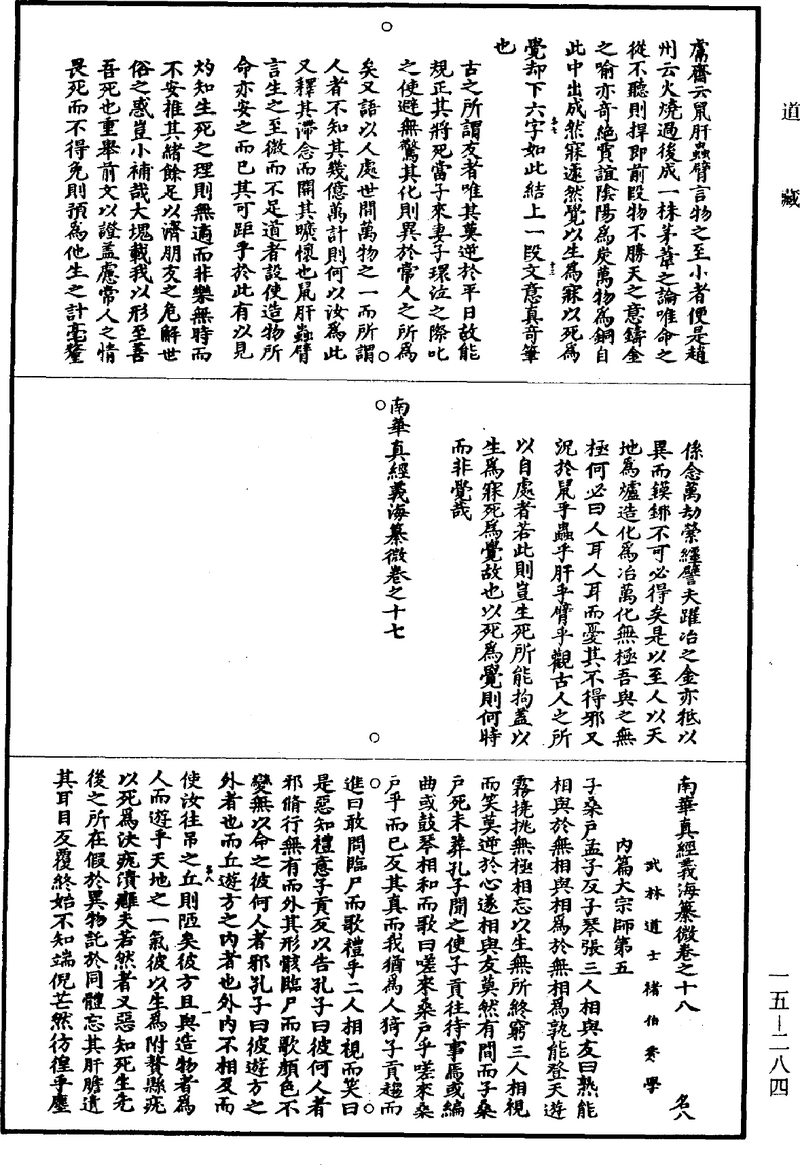 道藏
鬳齋云鼠肝蟲臂言物之至小者便是趙
州云火燒過後成一株茅葦之論唯命之
從不聽則捍即前段物不勝天之意鑄金
之喻亦奇絕賈誼陰陽為炭萬物為銅自
此中出成然寐蘧然覺以生為寐以死為
覺却下六字如此結上一段文意真奇筆
也
古之所謂友者唯其莫逆於平日故能
規正其將死當子來妻子環泣之際叱
之使避無驚其化則異於常人之所為
矣又語以人處世間萬物之一而所謂
人者不知其幾億萬計則何以汝為此
又釋其滯念而開其曠懷也鼠肝蟲臂
言生之至微而不足道者設使造物所
命亦安之而已其可距乎於此有以見
灼知生死之理則無適而非樂無時而
不安推其緒餘足以濟朋友之危解世
俗之惑豈小補哉大塊載我以形至善
吾死也重舉前文以證蓋慮常人之情
畏死而不得免則預為他生之計毫釐
係念萬劫縈纏譬夫躍冶之金亦秪以
異而鏌鋣不可必得矣是以至人以天
地為爐造化為冶萬化無極吾與之無
極何必曰人耳人耳而憂其不得邪又
況於鼠乎蟲乎肝乎臂乎觀古人之所
以自處者若此則豈生死所能拘蓋以
生為寐死為覺故也以死為覺則何時
而非覺哉
南華真經義海纂微卷之十七
南華真經義海纂微卷之十八 名八
武林道士褚伯秀學
內篇大宗師第五
子桑戶孟子反子琴張三人相與友曰熟能
相與於無相與相為於無相為孰能登天遊
霧撓挑無極相忘以生無所終窮三人相視
而笑莫逆於心遂相與友莫然有間而子桑
戶死未葬孔子聞之使子貢往待事焉或編
曲或鼓琴相和而歌曰嗟來桑戶乎嗟來桑
戶乎而已反其真而我猶為人猗子貢趨而
進曰敢問臨尸而歌禮乎二人相視而笑曰
是惡知禮意子貢反以告孔子曰彼何人者
邪脩行無有而外其形骸臨尸而歌顏色不
變無以命之彼何人者邪孔子曰彼遊方之
外者也而丘遊方之內者也外內不相及而
使汝往吊之丘則陋矣彼方且與造物者為
人而遊乎天地之一氣彼以生為附贅縣疣
以死為決疣潰癰夫若然者又惡知死生先
後之所在假於異物託於同體忘其肝膽遺
其耳目反覆終始不知端倪芒然彷徨乎塵
一五-二八四